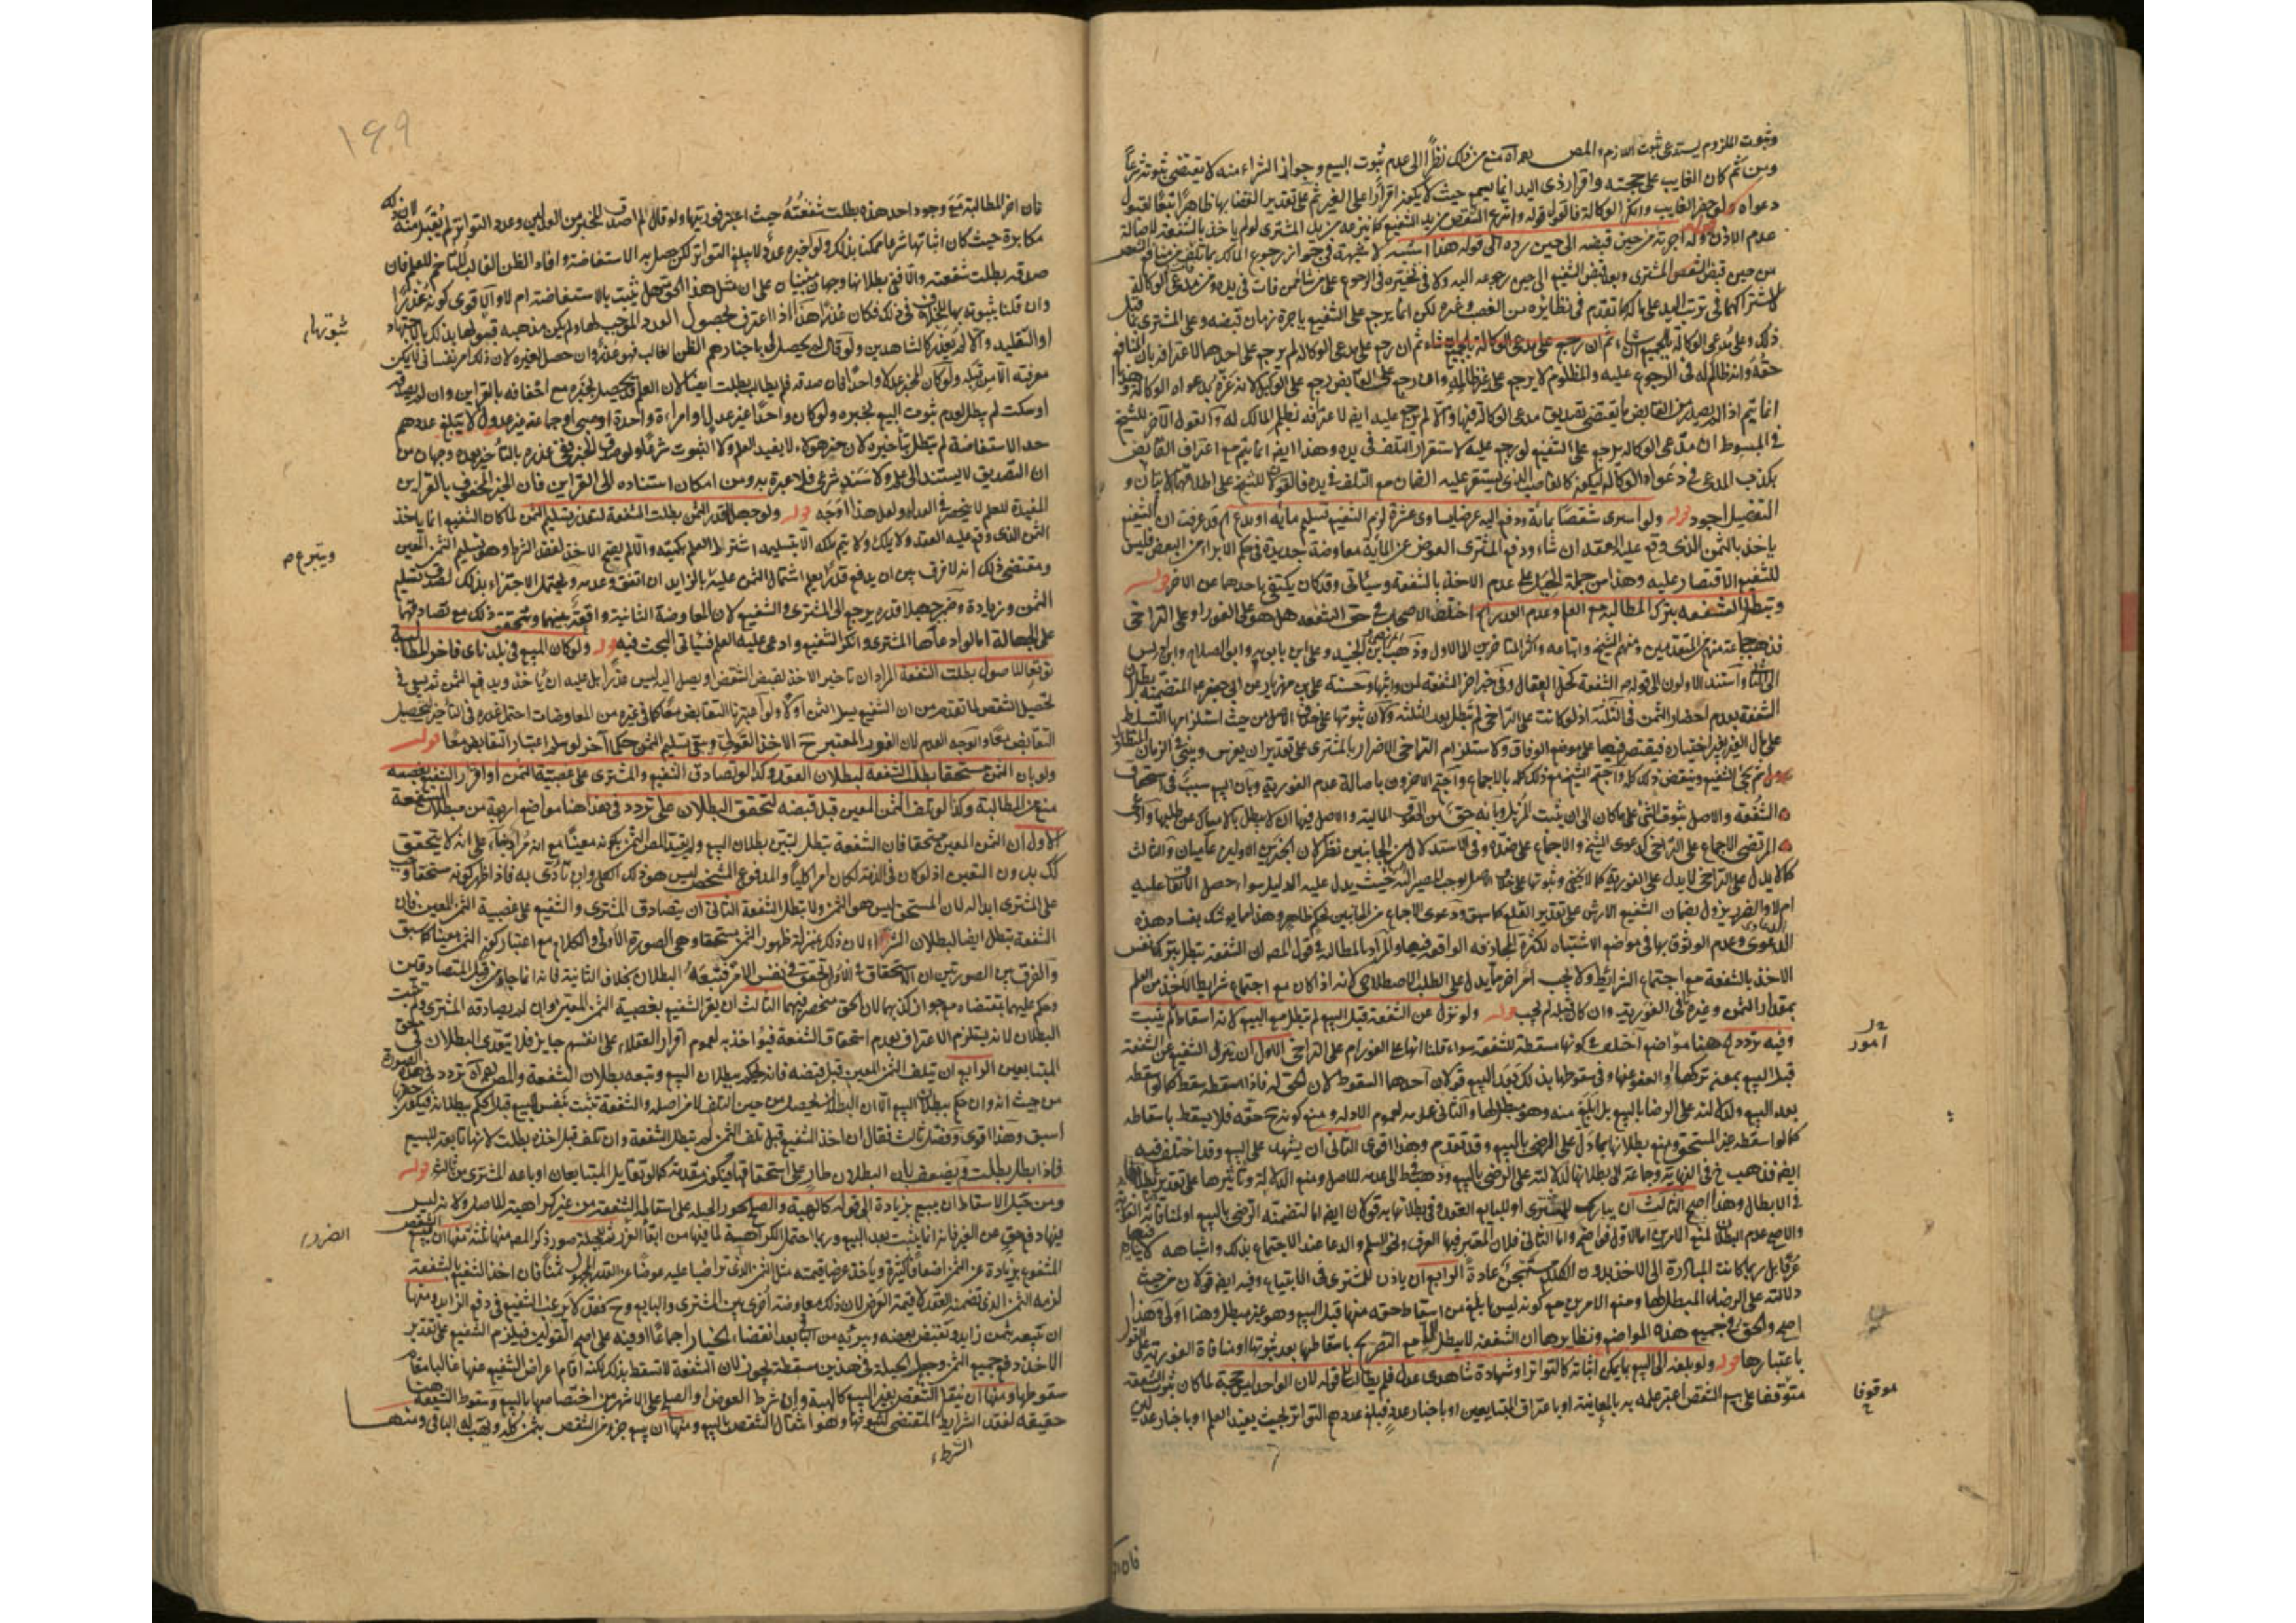 وثبوت الملزوم يستدعى ثبوت اللازم والمص رحمه الله منع من ذلك نظرا الى عدم ثبوت البيع وجواز الشراء منه لا يقتضى ثبوته شرعا
ومن ثم كان الغايب على حجته واقرار ذى اليد انما يسمع حيث لا يكون اقرارا على الغير ثم على تقدير القضا بها ظاهرا تبعا لقبول
دعواه لو حضر الغايب وانكر الوكالة فالقول قوله وانتزع الشقص من يد الشفيع كما ينزعه من يد المشترى لو لم ياخذ بالشفعة لاصالة
عدم الاذن وله اجرته من حين قبضه الى حين رده الى قوله هذا اشبه لا شبهة في جواز رجوع المالك بما تلف من منافع الشقص
من حين قبض المشترى وبعد قبض الشفيع الى حين رجوعه اليه ولا في تخيره في الرجوع على من شاء ممن فات في يده ومن مدعى الوكالة
لاشتراكهما في ترتب اليد على ماله كما تقدم في نظايره من الغصب وغيره لكن انما يرجع على الشفيع باجرة زمان قبضه وعلى المشترى بما قبل
ذلك وعلى مدعى الوكالة بالجميع ان شاء ثم ان رجع على مدعى الوكالة لم يرجع على احدهما لاعترافه بان المنافع
حقه وانه ظالم له في الرجوع عليه والمظلوم لا يرجع على غير ظالمه وان رجع على القابض رجع على الوكيل لانه غره بدعواه الوكالة وهذا
في المبسوط ان مدعى الوكالة يرجع على الشفيع لو رجع عليه لاستقرار التلف في يده وهذا ايضا انما يتم مع اعتراف القابض
بكذب المدعى في دعواه الوكالة ليكون كالغاصب الذى يستقر عليه الضمان مع التلف في يده فالقولان للشيخ على اطلاقهما لا يتمان و
التفصيل اجود قوله ولو اشترى شقصا بمائة ودفع اليه عرضا يساوى عشرة لزم الشفيع تسليم مائة او يدع قد عرفت ان الشفيع
ياخذ بالثمن الذى وقع عليه العقد ان شاء ودفع المشترى العوض عن المائة معاوضة جديدة في حكم الابراء من البعض فليس
للشفيع الاقتصار عليه وهذا من جملة الحيل على عدم الاخذ بالشفعة وسياتى وقد كان يكتفى باحدهما عن الاخر قوله
وتبطل الشفعة بترك المطالبة مع العلم وعدم العذر اختلف الاصحاب في حق الشفعة هل هو على الفور او على التراخى
فذهب جماعة من المتقدمين ومنهم الشيخ واتباعه واكثر المتاخرين الى الاول وذهب المرتضى وابن الجنيد وعلى ابن بابويه وابو الصلاح وابن ادريس
الى الثانى واستند الاولون الى قوله الشفعة كحل العقال وفي خبر اخر الشفعة لمن واثبها وحسنة على بن مهزيار عن ابى جعفر المتضمنة بطلان
الشفعة بعدم احضار الثمن في الثلثة اذ لو كانت على التراخى لم تبطل بعد الثلثة ولان ثبوتها على خلاف الاصل من حيث استلزامها التسلط
على مال الغير بغير اختياره فيقتصر فيها على موضع الوفاق ولاستلزام التراخى الاضرار بالمشترى على تقدير ان يغرس ويبنى في الزمان المتطاول
ثم يجئ الشفيع وينقض ذلك كله واحتج الشيخ مع ذلك كله بالاجماع واحتج الاخرون باصالة عدم الفورية وبان البيع سبب في استحقاق
الشفعة والاصل ثبوت الشئ على ما كان الى ان يثبت المزيل وبانه حق من الحقوق المالية والاصل فيها ان لا تبطل بالامساك عن طلبها وادعى
المرتضى الاجماع على التراخى كدعوى الشيخ والاجماع على ضده وفي الاستدلال من الجانبين نظر لان الخبرين الاولين عاميان والثالث
كما لا يدل على التراخى لا يدل على الفورية كما لا يخفى وثبوتها على خلاف الاصل يوجب المصير اليه حيث يدل عليه الدليل سواء حصل الاتفاق عليه
ام لا والضرر يزول بضمان الشفيع الارش على تقدير القلع كما سبق ودعوى الاجماع من الجانبين حكم ظاهر وهذا مما يوشك بفساد هذه
الدعوى وعدم الوثوق بها في مواضع الاشتباه لكثرة المجازفة الواقعة فيها والمراد بالمطالبة في قول المص ان الشفعة تبطل بتركها نفس
الاخذ بالشفعة مع اجتماع الشرايط ولا يجب امر اخر ما يدل على الطلب الاصطلاحى لانه اذا كان مع اجتماع شرايط الاخذ من العلم
بمقدار الثمن وغيره نافى الفورية وان كان قبله لم يجب قوله ولو نزل عن الشفعة قبل البيع لم تبطل مع البيع لانه اسقاط ما لم يثبت
وفيه تردد هنا مواضع اختلف في كونها مسقطة للشفعة سواء قلنا انها على الفور ام على التراخى الاول ان ينزل الشفيع عن الشفعة
قبل البيع بمعنى تركها والعفو عنها وفي سقوطها بذلك بعد البيع قولان احدهما السقوط لان الحق له فاذا اسقطه سقط كما لو اسقطه
بعد البيع ولدلالته على الرضا بالبيع بل ابلغ منه وهو مبطل لها والثانى عدمه لعموم الادلة ومنع كونه ح حقه فلا يسقط باسقاطه
كما لو اسقطه غير المستحق ومنع بطلانها بما دل على الرضى بالبيع وقد تقدم وهذا اقوى الثانى ان يشهد على البيع وقد اختلف فيه
ايضا فذهب الشيخ في النهاية وجماعة الى بطلانها لدلالته على الرضى بالبيع وذهب في المبسوط الى عدمه للاصل ومنع الدلالة ومنع تاثيرها على تقديرها
في الابطال وهذا اصح الثالث ان يبارك للمشترى او للبايع العقد وفي بطلانها به قولان ايضا اما لتضمنه الرضى بالبيع او لمنافاته الفورية
والاصح عدم البطلان لمنع الامرين اما الاول فواضح واما الثانى فلان المعتبر فيها العرف ونحو السلم والدعا عند الاجتماع بذلك واشباهه لا ينافيها
عرفا بل ربما كانت المبادرة الى الاخذ بدون الكلام مستهجن عادة الرابع ان ياذن للمشترى في الابتياع وفيه ايضا قولان من حيث
دلالته على الرضاء المبطل لها ومنع الامرين مع كونه ليس بابلغ من اسقاط حقه منها قبل البيع وهو غير مبطل وهنا اولى وهذا
اصح والحق في جميع هذه المواضع ونظايرها ان الشفعة لا تبطل الا مع التصريح باسقاطها بعد ثبوتها او منافاة الفورية على القول
باعتبارها قوله ولو بلغه البيع بما يمكن اثباته كالتواتر او شهادة شاهدى عدل فلم يطالب وقال لم اصدق بطلت لان الواحد ليس حجة لما كان ثبوت الشفعة
متوقفا على بيع الشقص اعتبر علمه به بالمعاينة او باعتراف المتبايعين او باخبار عدد يبلغ عددهم التواتر بحيث يفيد العلم او باخبار عدلين
امور
موقوفا
فان اخر
١٤٩
فان اخر المطالبة مع وجود احد هذه بطلت شفعته حيث اعتبر فوريتها ولو قال لم اصدق المخبر من العدلين وعدد التواتر لم يقبل منه لان ذلك
مكابرة حيث كان اثباتها شرعا ممكنا بذلك ولو اخبره عدد لا يبلغ التواتر لكن حصل به الاستفاضة وافاد الظن الغالب المتاخم للعلم فان
صدقه بطلت شفعته والا ففى بطلانها وجهان مبنيان على ان مثل هذا الحق هل يثبت بالاستفاضة ام لا والاقوى كونه عذرا
وان قلنا بثبوته بها للخلاف في ذلك فكان عذرا هذا اذا اعترف بحصول العدد الموجب لها ولم يكن مذهبه قبولها بذلك بالاجتهاد
او التقليد والا لم يعذر كالشاهدين ولو قال لم يحصل لى باخبارهم الظن الغالب فهو عذر وان حصل لغيره لان ذلك امر نفسانى لا يمكن
معرفته الا من قبله ولو كان المخبر عدلا واحدا فان صدقه فلم يطالب بطلت ايضا لان العلم قد يحصل بخبره مع احتفافه بالقراين وان لم يصدقه
او سكت لم تبطل لعدم ثبوت البيع بخبره ولو كان واحدا غير عدل او امراة واحدة او صبى او جماعة غير عدول لا يبلغ عددهم
حد الاستفاضة لم تبطل بتاخيره لان خبر هؤلاء لا يفيد العلم ولا الثبوت شرعا ولو صدق المخبر ففى عذره بالتاخير بعده وجهان من
ان التصديق لا يستند الى علم ولا سند شرعى فلا عبرة به ومن امكان استناده الى القراين فان الخبر المحفوف بالقراين
المفيدة للعلم لا ينحصر في العدل ولعل هذا اوجه قوله ولو جهل قدر الثمن بطلت الشفعة لتعذر تسليم الثمن لما كان الشفيع انما ياخذ
الثمن الذى وقع عليه العقد ولا يملك ولا يتم ملكه الا بتسليمه اشترط العلم بكميته والا لم يصح الاخذ لفقد الشرط وهو تسليم الثمن المعين
ومقتضى ذلك انه لا فرق بين ان يدفع قدرا يعلم اشتمال الثمن عليه بالزايد ان اتفق وعدمه ويحتمل الاجتزاء بذلك لصدق تسليم
الثمن وزيادة وضرر جهله بقدره يرجع الى المشترى والشفيع لان المعاوضة الثانية واقعة بينهما ويتحقق ذلك مع تصادقهما
على الجهالة اما لو ادعاها المشترى وانكر الشفيع وادعى عليه العلم فسياتى البحث فيه قوله ولو كان المبيع في بلد ناى فاخر المطالبة
توقعا للوصول بطلت الشفعة المراد ان تاخير الاخذ لقبض الشقص او يصل اليه ليس عذرا بل عليه ان ياخذ ويدفع الثمن ثم يسعى في
تحصيل الشقص لما تقدم من ان الشفيع يسلم الثمن اولا ولو اعتبرنا التقابض معا كما في غيره من المعاوضات احتمل عذره في التاخير لتحصيل
التقابض معا والوجه العدم لان الفور المعتبر ح الاخذ القولى ويبقى تسليم الثمن حكما آخر لو سلم اعتبار التقابض معا قوله
ولو بان الثمن مستحقا بطلت الشفعة لبطلان العقد وكذا لو تصادق الشفيع والمشترى على غصبية الثمن او اقر الشفيع بغصبه
منع من المطالبة وكذا لو تلف الثمن المعين قبل قبضه لتحقق البطلان على تردد في هذا هنا مواضع اربعة من مبطلات الشفعة
الاول ان الثمن المعين مستحقا فان الشفعة تبطل لتبين بطلان البيع ولم يقيد المص الثمن بكونه معينا مع انه مراد بناء على انه لا يتحقق
ذلك بدون التعيين اذ لو كان في الذمة لكان امرا كليا والمدفوع المشخص ليس هو ذلك الكلى وان تادى به فاذا ظهر كونه مستحقا وجب
على المشترى ابداله لان المستحق ليس هو الثمن ولا تبطل الشفعة الثانى ان يتصادق المشترى والشفيع على غصبية الثمن المعين فان
الشفعة تبطل ايضا لبطلان الشراء لان ذلك بمنزلة ظهور الثمن مستحقا وهى الصورة الاولى والكلام مع اعتبار كون الثمن معينا كما سبق
والفرق بين الصورتين ان الاستحقاق في الاول تحقق في نفس الامر فتبعه البطلان بخلاف الثانية فانه انما جاء من قبل المتصادقين
وحكم عليهما بمقتضاه مع جواز كذبهما لان الحق منحصر فيهما الثالث ان يقر الشفيع بغصبية الثمن المعين وان لم يصادقه المشترى ولم يثبت
البطلان لانه يستلزم الاعتراف بعدم استحقاق الشفعة فيؤاخذ به لعموم اقرار العقلاء على انفسهم جايز فلا يتعدى البطلان في حق
المتبايعين الرابع ان يتلف الثمن المعين قبل قبضه فانه يحكم ببطلان البيع ويتبعه بطلان الشفعة والمص رحمه الله تردد في هذه الصورة
من حيث انه وان حكم ببطلان البيع الا ان البطلان يحصل من حين التلف لا من اصله والشفعة تثبت بنفس البيع قبل الحكم ببطلانه فيكون حقها
اسبق وهذا اقوى وفصل ثالث فقال ان اخذ الشفيع قبل تلف الثمن لم تبطل الشفعة وان تلف قبل اخذه بطلت لانها تابعة للبيع
فاذا بطل بطلت ويضعف بان البطلان طار على استحقاقها فيكون مقدمة كما لو تقايل المتبايعان او باعه المشترى من ثالث قوله
ومن حيل الاسقاط ان يبيع بزيادة الى قوله كالهبة والصلح تجوز الحيلة على اسقاط الشفعة من غير كراهية للاصل ولانه ليس
فيها دفع حق عن الغير فانه انما يثبت بعد البيع وربما احتمل الكراهية لما فيها من ابقاء الضرر للحيلة صور ذكر المصنف منها ثلثة منها ان يبيع الشقص
المشفوع بزيادة عن الثمن اضعافا كثيرة وياخذ عرضا قيمته مثل الثمن الذى تراضيا عليه عوضا عن القدر المجعول ثمنا فان اخذ الشفيع بالشفعة
لزمه الثمن الذى تضمنه العقد لا قيمة العرض لان ذلك معاوضة اخرى بين المشترى والبايع وح فقل ان يرغب الشفيع في دفع الزايد ومنها
ان تبيعه بثمن زايد وتقبض بعضه ويبرئه من الباقى بعد انقضاء الخيار اجماعا او فيه على اصح القولين فيلزم الشفيع على تقدير
الاخذ دفع جميع الثمن وجعل الحيلة في هذين مسقطة تجوز لان الشفعة لا تسقط بذلك لكنه اقام اعراض الشفيع عنها غالبا مقام
سقوطها ومنها ان ينقل الشقص بغير البيع كالهبة وان شرط العوض او الصلح على الاشهر من اختصاصها بالبيع وسقوط الشفعة هنا
حقيقة لفقد الشرايط المقتضى لثبوتها وهو انتقال الشقص بالبيع ومنها ان يبيع جزء من الشقص بثمن كله ويهب له الباقى ومنها
ثبوتها
ويتبرع
الضرر
الشرط